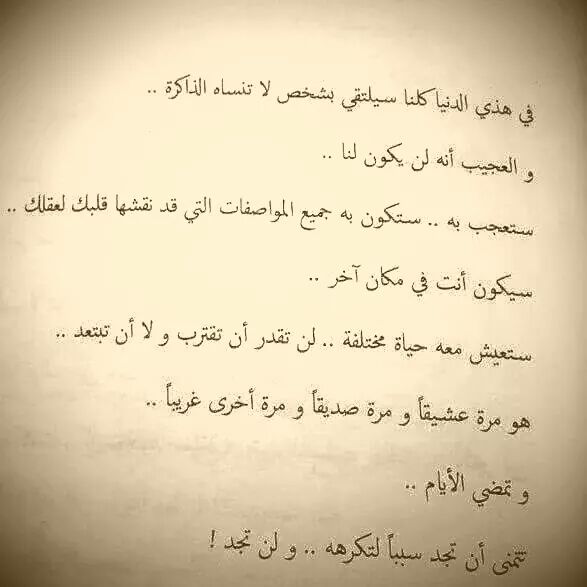 في هذي الدنيا كلنا سيلتقي بشخص لا تنساه الذاكرة ..
و العجيب أنه لن يكون لنا ..
ستعجب به .. ستكون به جميع المواصفات التي قد نقشها قلبك لعقلك ..
سيكون أنت في مكان آخر ..
ستعيش معه حياة مختلفة .. لن تقدر أن تقترب و لا أن تبتعد ..
هو مرة عشيقاً و مرة صديقاً و مرة أخرى غريباً ..
و تمضي الأيام ..
تتمنى أن تجد سبباً لتكرهه .. و لن تجد !